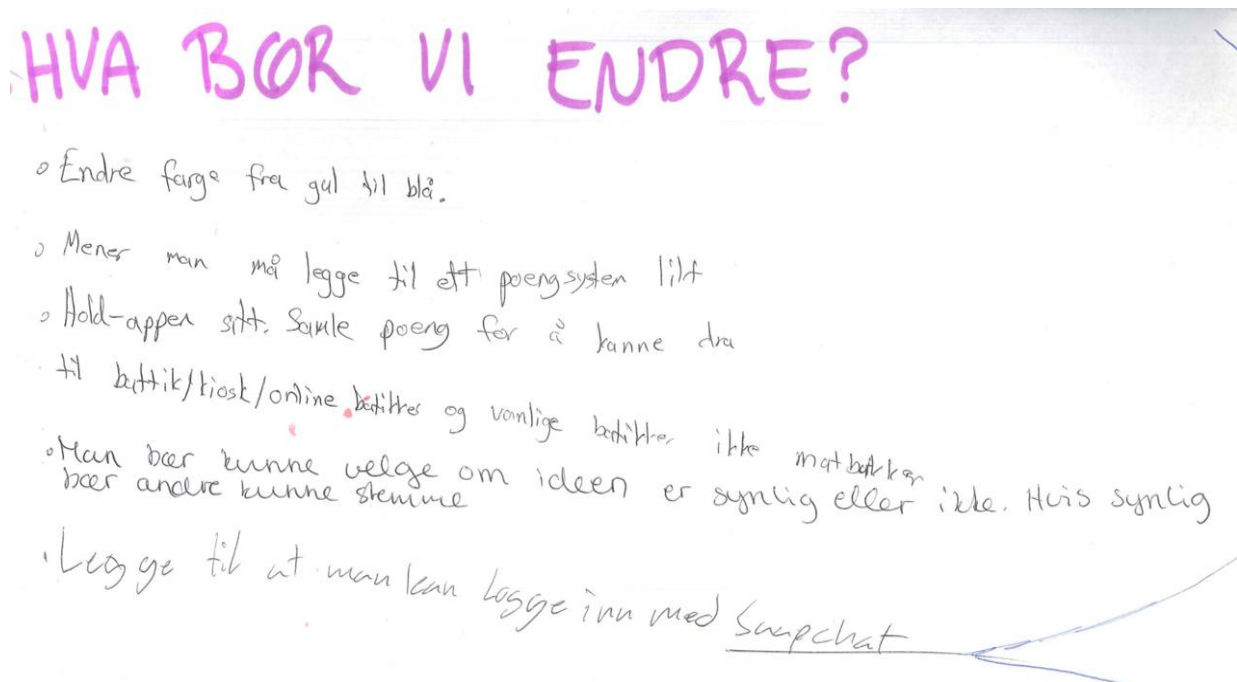 HVA BØR VI ENDRE?
• Endre farge fra gul til blå.
• Mener man må legge til ett poengsystem likt
• Hold-appen sitt. Samle poeng for å kunne dra
til buttik/kiosk/online butikker og vanlige butikker ikke matbutikker
• Man bør kunne velge om ideen er synlig eller ikke. Hvis synlig
bør andre kunne stemme
• Legge til at man kan logge inn med Snapchat